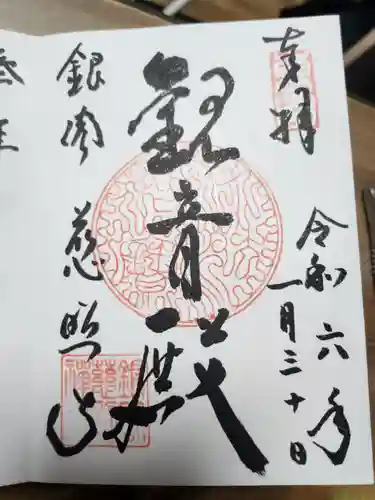 奉拝
令和六年
一月三十日
觀音殿
銀閣 慈照寺